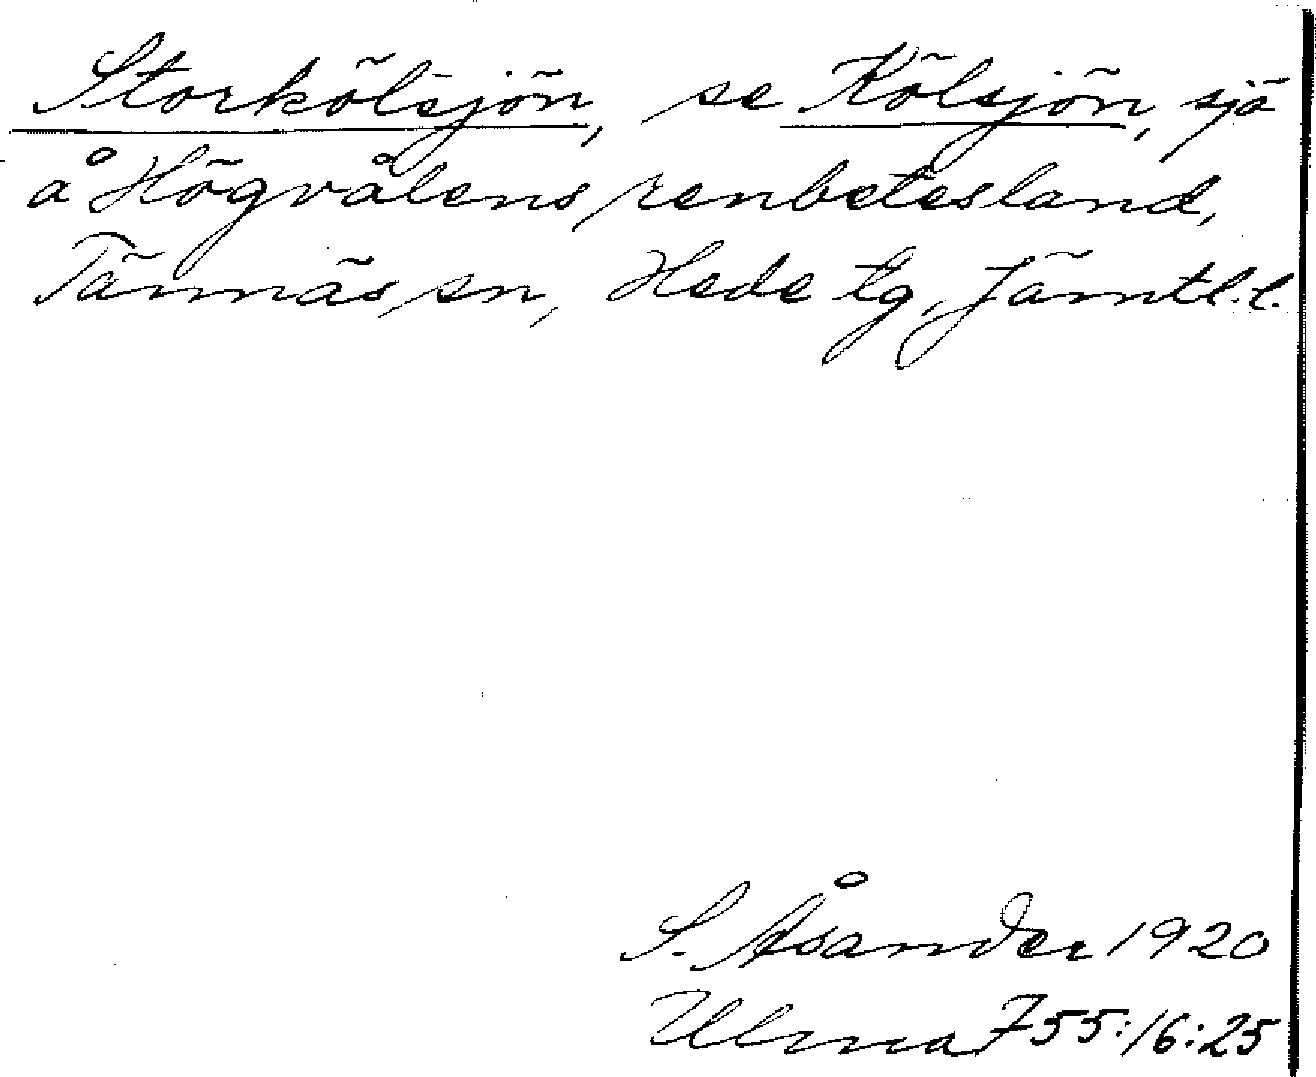 Storkölsjön, se Kölsjön, sjö
å Högvålens renbetesland,
Tännäs sn, Hede tg, Jämtl. l.
S. Åsander 1920
Ulma 755:16:25